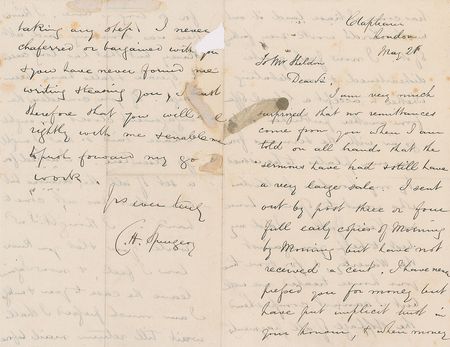 Clapham
London
May 21
To Mr Sheldon
Dear Sir,
I am very much
surprized that no remittances
come from you when I am
told on all hands that the
sermons have had & still have
a very large sale. I sent
out by post three or four
full early copies of Morning
by Morning but have not
received a cent. I have never
pressed you for money but
have put implicit trust in
your honour, & when money
taking any steps. I never
chaffered or bargained with you
& you have never found me
writing & teasing you, I
therefore that you will
rightly with me & enable me
to push forward my
work.
Yrs ever truly
C. H. Spurgeon